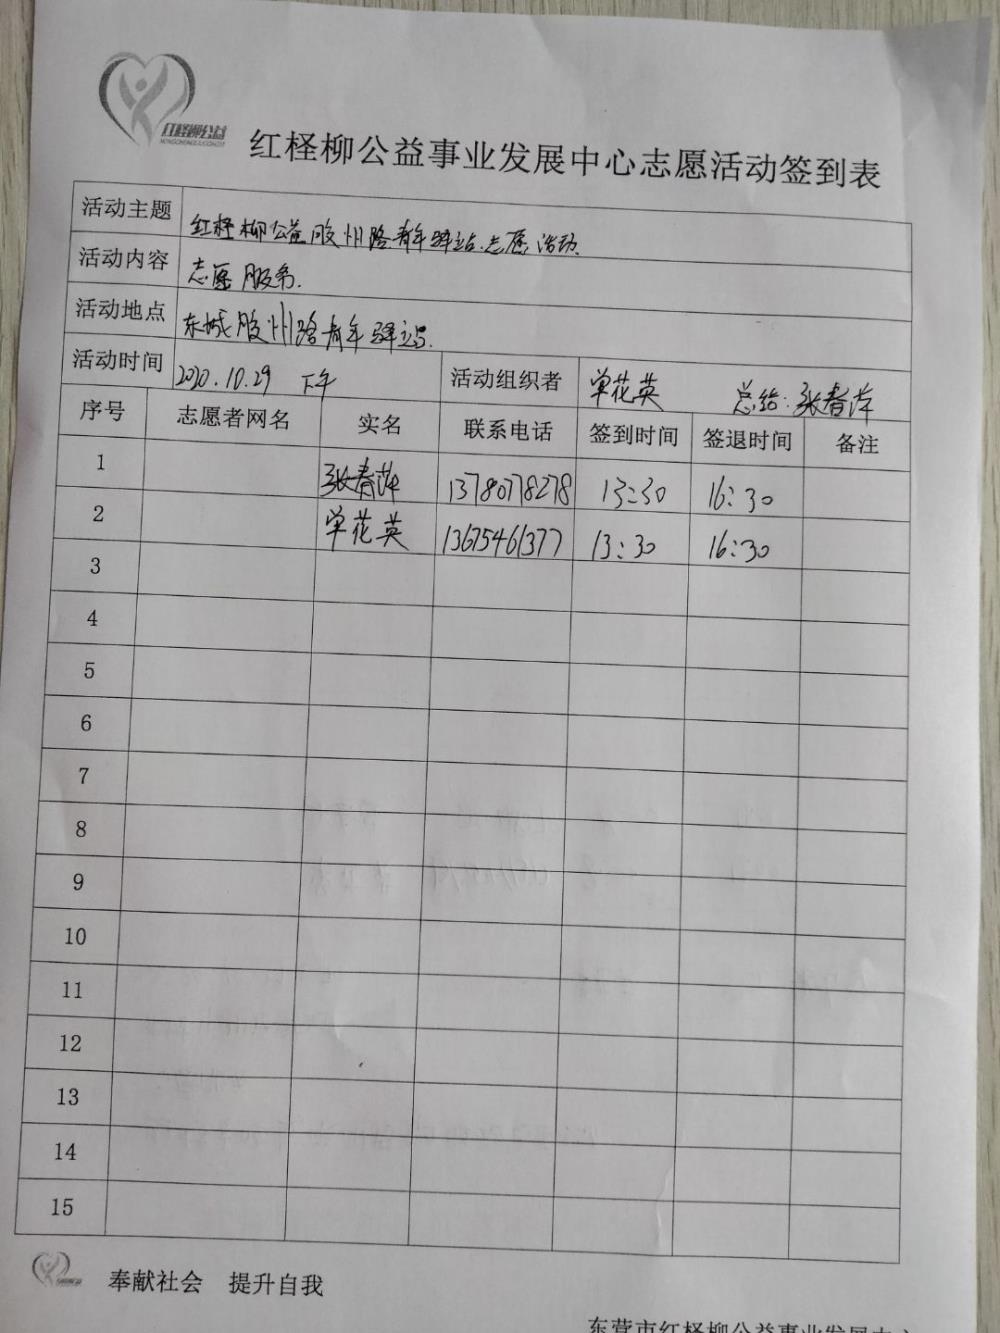 红柽柳公益
红柽柳公益事业发展中心志愿活动签到表
活动主题 红柽柳公益胶州路青年驿站志愿活动
活动内容 志愿服务.
活动地点 东城胶州路青年驿站.
活动时间 2020.10.29 下午 活动组织者 单花英 总结:张春萍
序号 志愿者网名 实名 联系电话 签到时间 签退时间 备注
1 张春萍 13780778278 13:30 16:30
2 单花英 13675461377 13:30 16:30
3
4
5
6
7
8
9
10
11
12
13
14
15
奉献社会 提升自我
东营市红柽柳公益事业发展中心